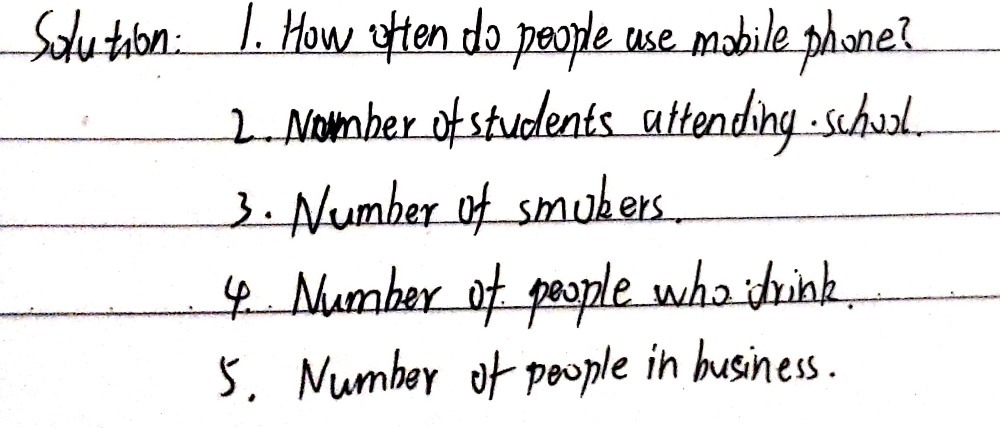 Solution: 1. How often do people use mobile phone?
2. Number of students attending school.
3. Number of smokers.
4. Number of people who drink.
5. Number of people in business.